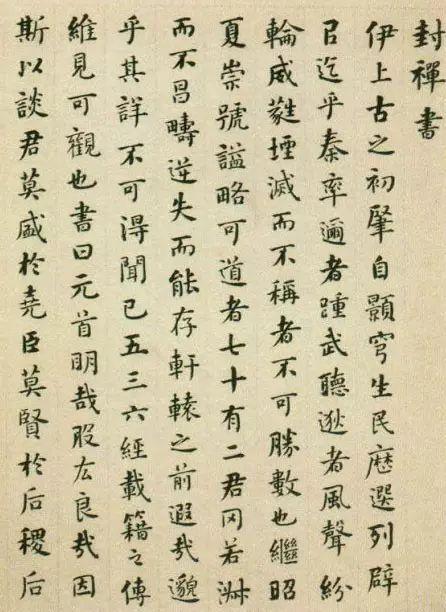 封禪書
伊上古之初肇自顥穹生民歷選列辟
㠯迄乎秦率邇者踵武聽逖者風聲紛
輪威蕤堙滅而不稱者不可勝數也繼昭
夏崇號謚略可道者七十有二君罔若淑
而不昌疇逆失而能存軒轅之前遐哉邈
乎其詳不可得聞已五三六經載籍之傳
維見可觀也書曰元首明哉股厷良哉因
斯以談君莫盛於堯臣莫賢於后稷后